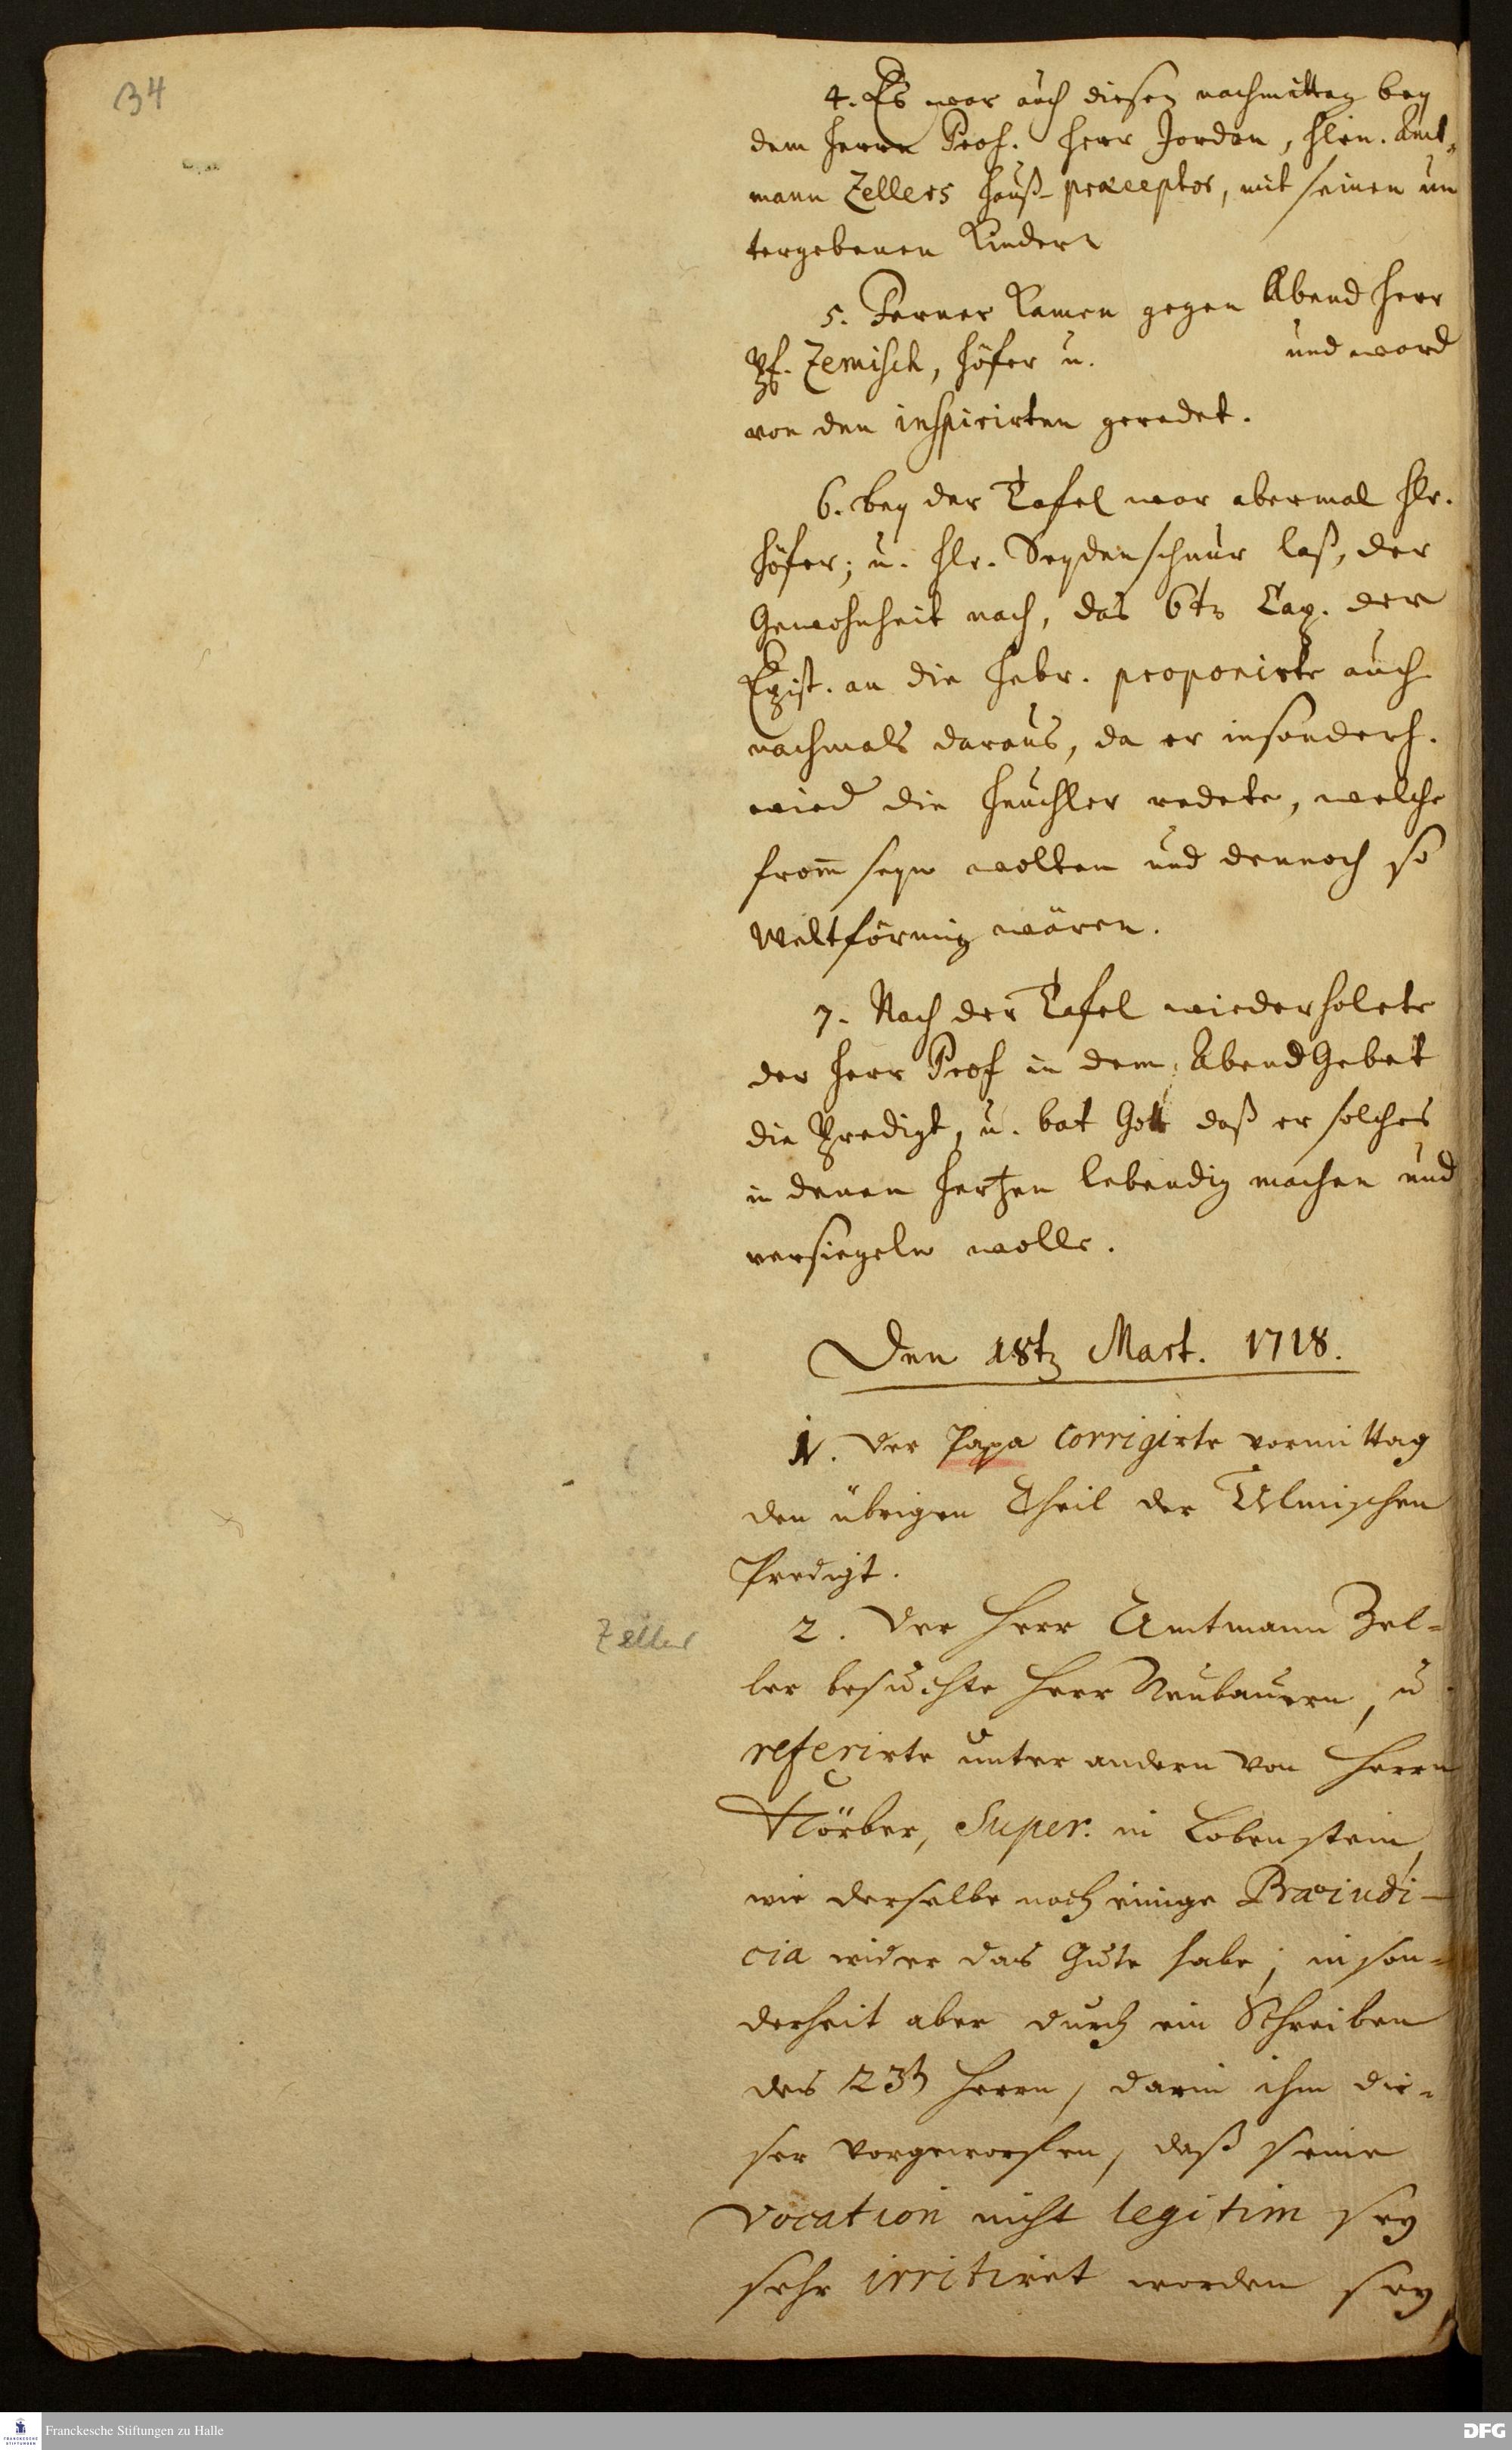 34
4. Es war auch diesen nachmittag bey
dem Herrn Prof. Herr Jordan, Hln. Amt-
mann Zellers Hauß-præceptor, mit seinen un
tergebenen Kindern
5. Ferner kamen gegen Abend Herr
Pf. Zemisch, Höfer u. und ward
von den inspirirten geredet.
6. bey der Tafel war abermal Hlr.
Höfer; u. Hlr. Seydenschnur laß, der
Gewohnheit nach, das 6te Cap. der
Epist. an die Hebr. proponirte auch
nachmals daraus, da er insonderh.
wied die Heuchler redete, welche
from̄ seyn wolten und dennoch so
Weltförmig wären.
7. Nach der Tafel wiederholete
der Herr Prof in dem AbendGebet
die Predigt, u. bat Gott daß er solches
in denen Hertzen lebendig machen und
versiegeln wolle.
Den 18ten Mart. 1718.
1. Der Papa corrigirte vormittag
den übrigen Theil der Ulmischen
Predigt.
Zeller
2. Der Herr Amtmann Zel-
ler besuchte Herr Neubauern, u.
referirte unter andern von Herrn
Körber, Super. in Lobenstein,
wie derselbe noch einige Praeiudi-
cia wider das Gute habe; inson-
derheit aber durch ein Schreiben
des 23t Herrn, darin ihm die-
ser vorgeworfen, daß seine
Vocation nicht legitim sey
sehr irritiret worden sey,
Franckesche Stiftungen zu Halle
DFG